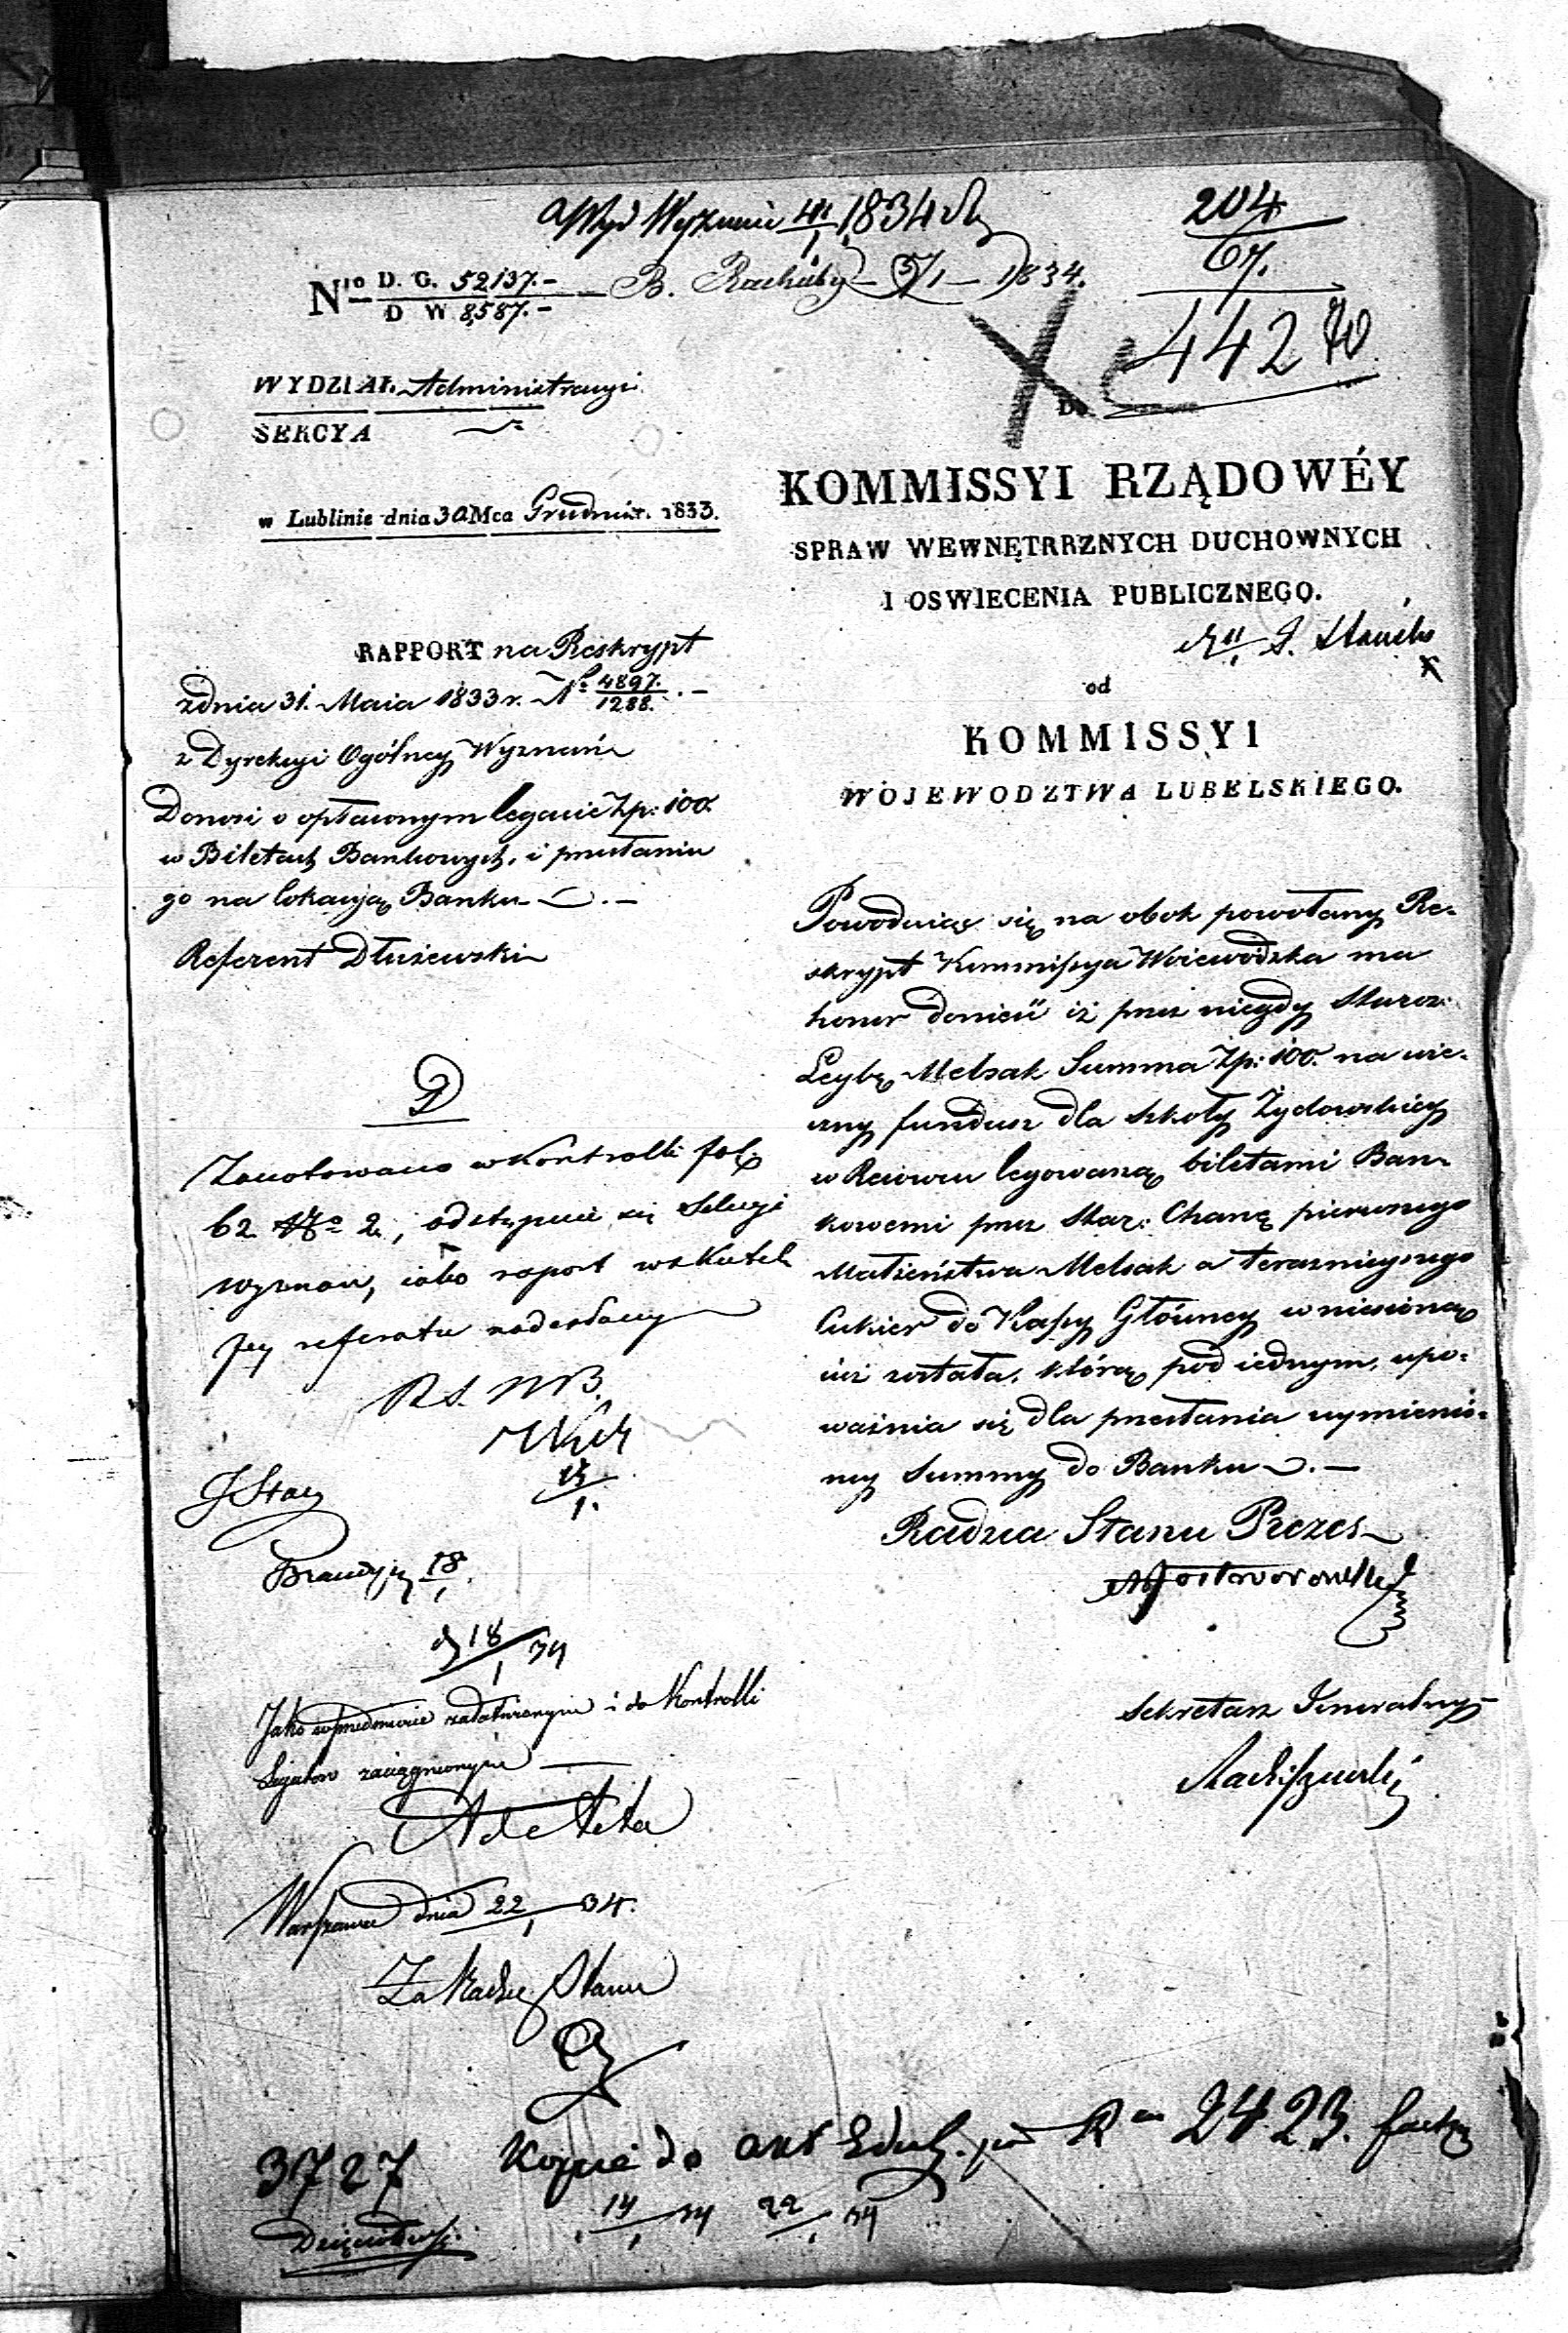 Wyd Wyznań 4/1 1834
204
67.
Nro D. G. 52137.–
D W 8,587.–
B. Rachuby 5/1 – 1834.
442
WYDZIAŁ Administracyi
SEKCYA
Do
w Lublinie dnia 30 Mca Grudnia 1833.
KOMMISSYI RZĄDOWÉY
SPRAW WEWNĘTRRZNYCH DUCHOWNYCH
I OSWIECENIA PUBLICZNEGO.
od
KOMMISSYI
WOJEWODZTWA LUBELSKIEGO.
RAPPORT na Reskrypt
z dnia 31. Maia 1833 r. No 4897./1288.–
z Dyrekcyi Ogólney Wyznań
Donosi o opłaconym legacie Zp: 100.
w Biletach Bankowych, i przesłaniu
go na lokacyą Banku –.–
Referent Dłużewski
Powoduiąc się na obok powołany Re-
skrypt Kommissya Woiewódzka ma
honor donieść iż przez niegdy Staroz:
Leybę Melsak Summa Zp: 100. na wie-
czny fundusz dla szkoły Żydowskiey
w Reiowcu legowaną biletami Ban-
kowemi przez Star: Chanę pierwszego
Małżeństwa Melsak a teraznieyszego
Cukier do Kassy Główney wniesioną
iuż została, którą pod iednym, upo-
ważnia się dla przesłania wymienio-
ney Summy do Banku –.–
Radzca Stanu Prezes
Sekretarz Jeneralny
Zanotowano w Kontrolli fol.
62 No 2, odstępuie się Sekcyi
wyznań, iako raport w skutek
Jey referatu nadesłany
18/1
18/1 34
Jako w przedmiocie załatwionym i do Kontrolli
Legatów zaciągnionym
Ad Acta
Warszawa dnia 22/1 34.
Za Radcę Stanu
3727
Kopie do akt Eduk. 2423.
14/1 34 22/1 34